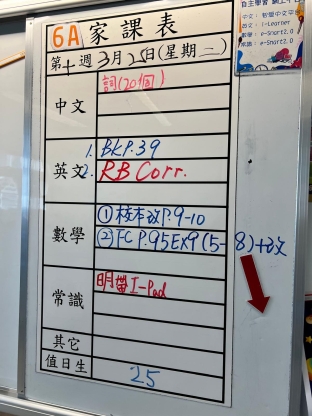 6A 家課表
第十週 3月25日(星期二)
中文
詞(20個)
英文
1. BKP.39
2. RB Corr.
數學
① 校本改P.9-10
② FC P.95EX9(5-8)+改
常識
明帶I-Pad
其它
值日生
25
自主學習 網上平台
中文：智愛中文平
英文：i-Learner
數學：e-Smart2.0
常識：e-Smart2.0